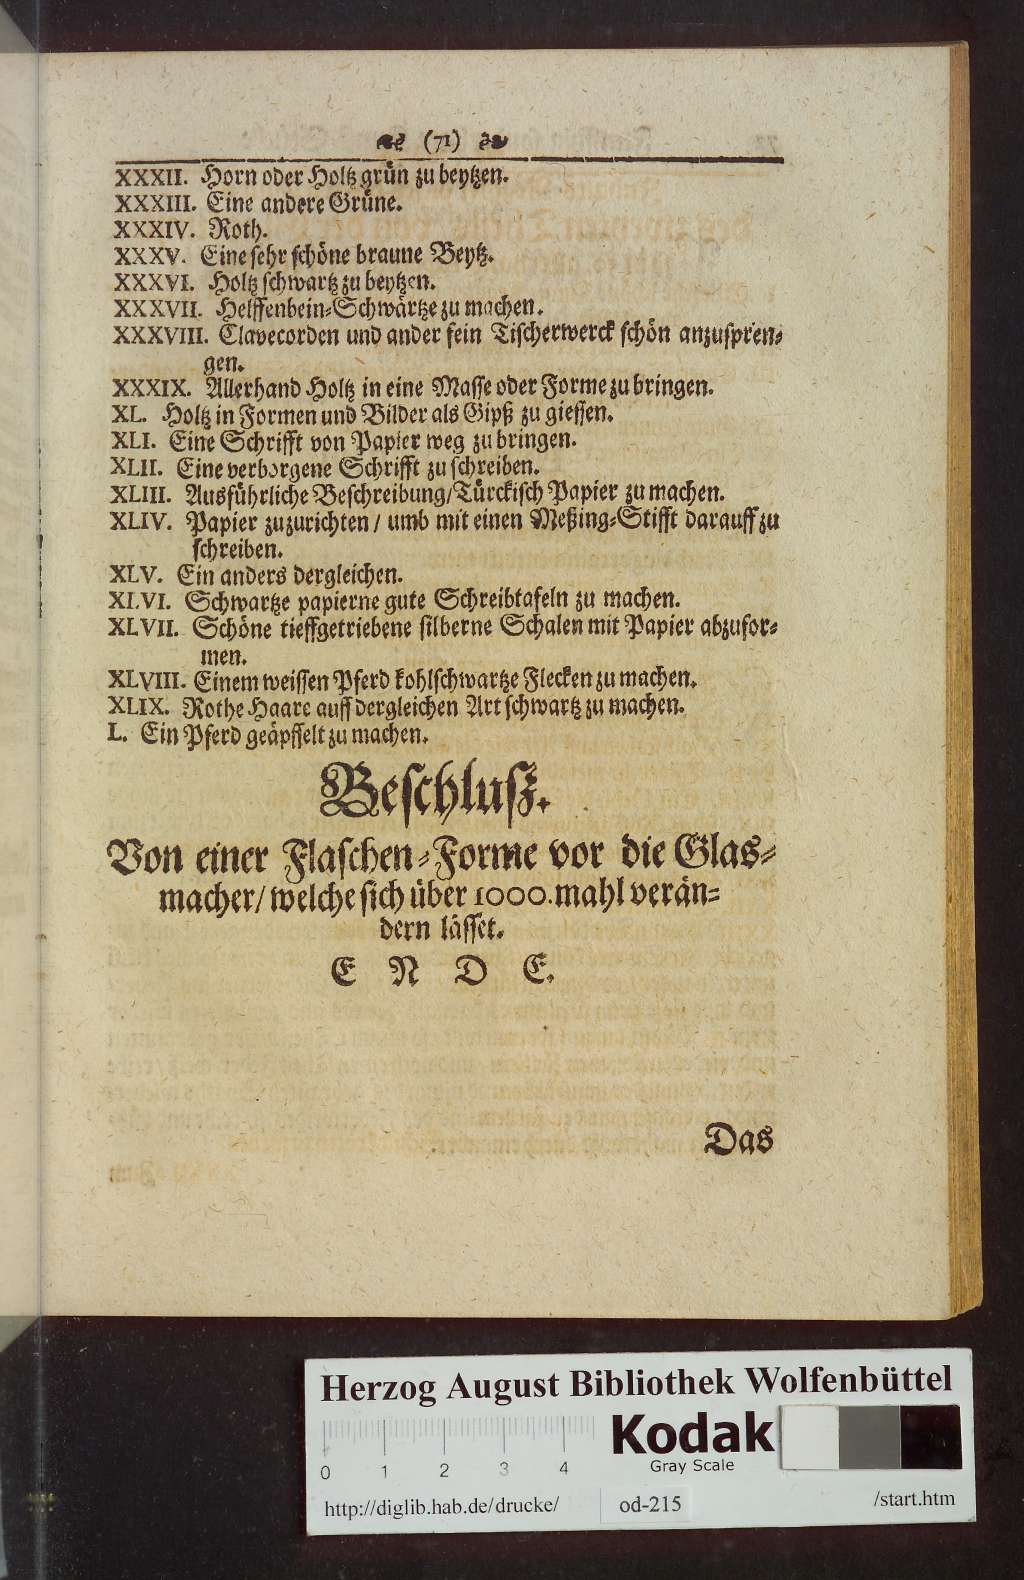 (71)
XXXII. Horn oder Holtz grün zu beytzen.
XXXIII. Eine andere Grüne.
XXXIV. Roth.
XXXV. Eine sehr schöne braune Beytz.
XXXVI. Holtz schwartz zu beytzen.
XXXVII. Helffenbein-Schwärtze zu machen.
XXXVIII. Clavecorden und ander fein Tischerwerck schön anzuspren-
gen.
XXXIX. Allerhand Holtz in eine Masse oder Forme zu bringen.
XL. Holtz in Formen und Bilder als Gipß zu giessen.
XLI. Eine Schrifft von Papier weg zu bringen.
XLII. Eine verborgene Schrifft zu schreiben.
XLIII. Ausführliche Beschreibung/Türckisch Papier zu machen.
XLIV. Papier zuzurichten / umb mit einen Meßing-Stifft darauff zu
schreiben.
XLV. Ein anders dergleichen.
XLVI. Schwartze papierne gute Schreibtafeln zu machen.
XLVII. Schöne tieffgetriebene silberne Schalen mit Papier abzufor-
men.
XLVIII. Einem weissen Pferd kohlschwartze Flecken zu machen.
XLIX. Rothe Haare auff dergleichen Art schwartz zu machen.
L. Ein Pferd geäpffelt zu machen.
Beschluß.
Von einer Flaschen-Forme vor die Glas-
macher/ welche sich über 1000. mahl verän-
dern lässet.
E N D E.
Das
Herzog August Bibliothek Wolfenbüttel
Kodak
Gray Scale
0 1 2 3 4
http://diglib.hab.de/drucke/ od-215 /start.htm